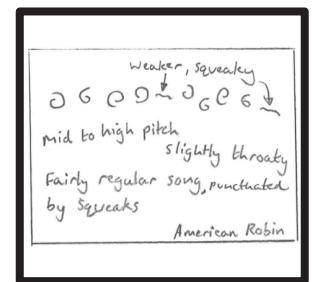 weaker, squeaky
mid to high pitch
slightly throaty
Fairly regular song, punctuated
by squeaks
American Robin